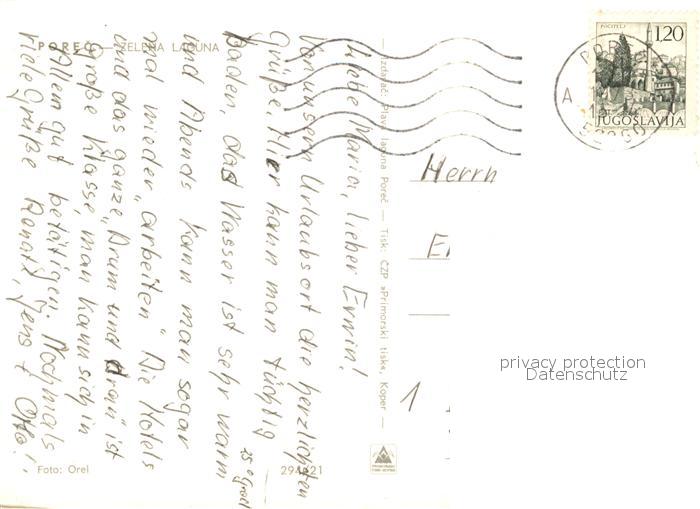 POREČ — ZELENA LAGUNA
Liebe Maria, lieber Erwin!
Von unserm Urlaubsort die herzlichsten
Grüße. Hier kann man tüchtig
baden, das Wasser ist sehr warm
25° Grad
und Abends kann man sogar
mal wieder „arbeiten" Die Hotels
und das ganze „Drum und dran" ist
Große Klasse, man kann sich in
Allem gut betätigen. Nochmals
viele Grüße Renate, Jens + Otto!
Foto: Orel
Izdajač: Plava laguna Poreč — Tisk: ČZP »Primorski tisk«, Koper —
294621
POČITELJ
1.20
JUGOSLAVIJA
POREČ
A
52360
Herrn
E
1
privacy protection
Datenschutz